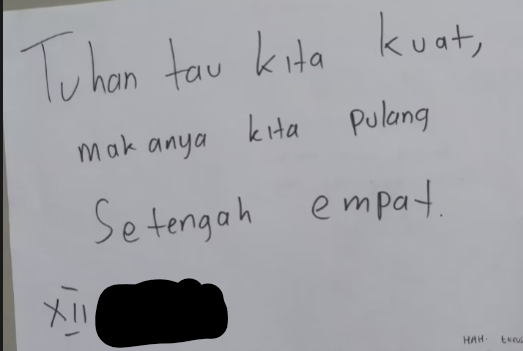 Tuhan tau kita kuat,
makanya kita pulang
Setengah empat.
XII
HAH.